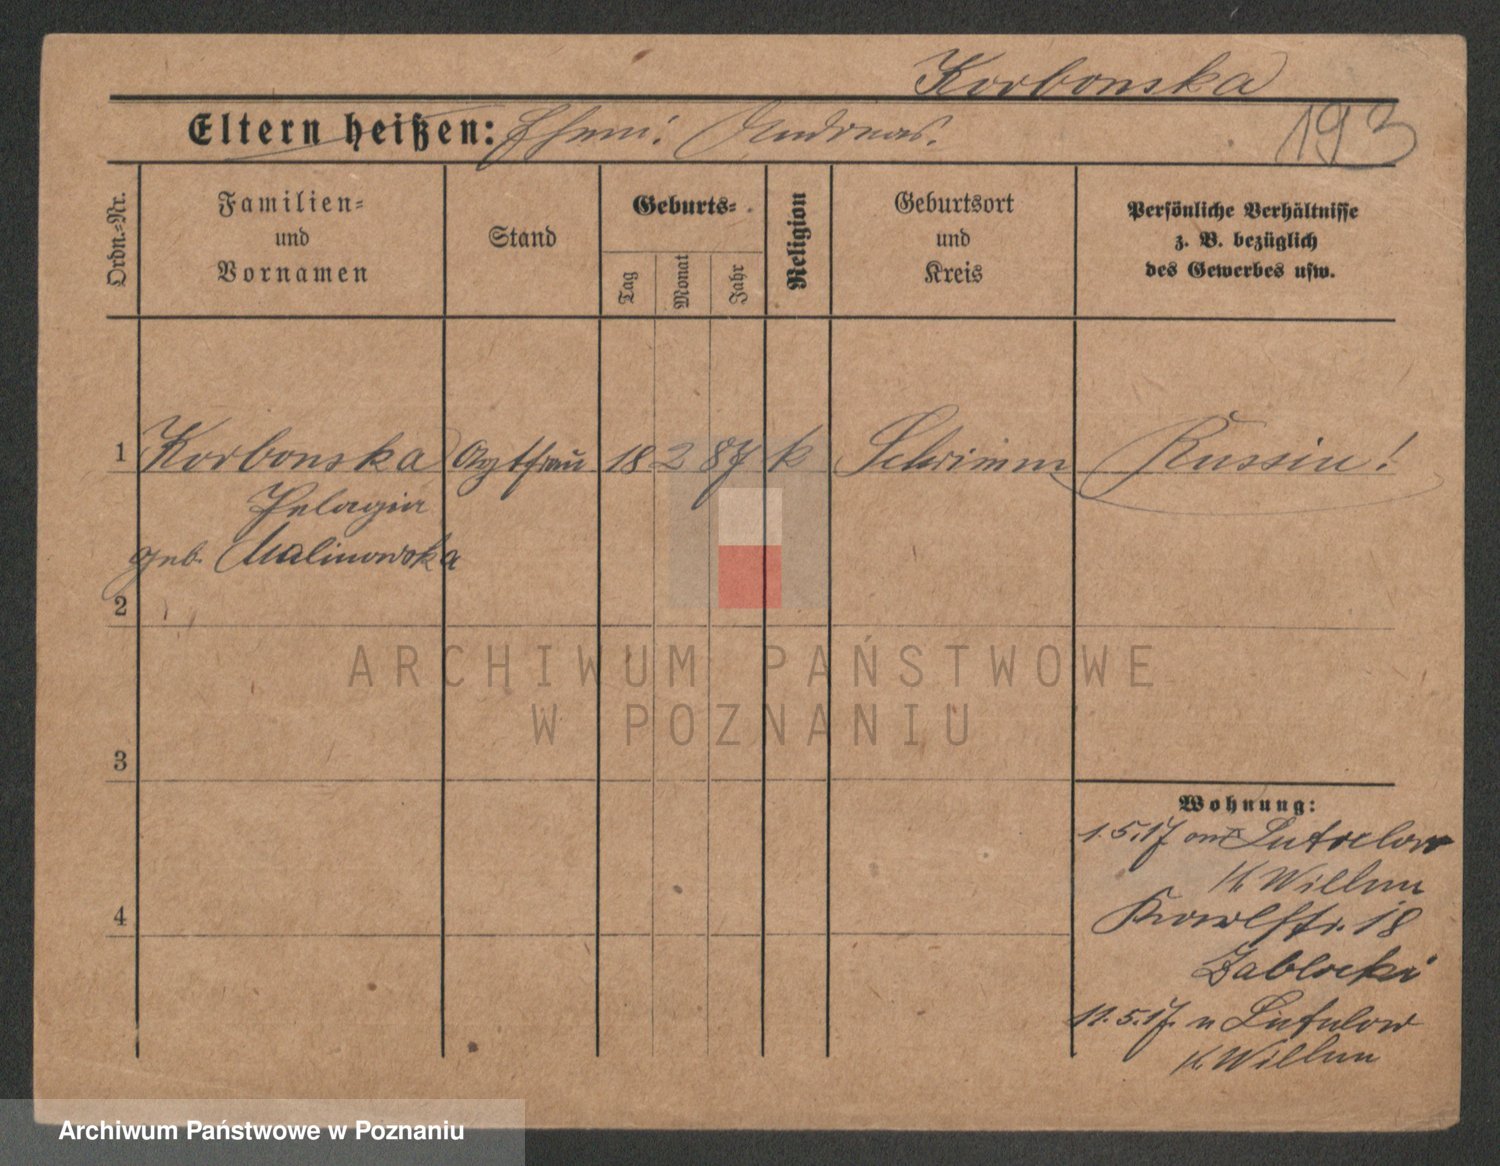 Korbonska
Eltern heißen: Ehem: Andreas.
193
Ordn.=Nr.
Familien=
und
Vornamen
Stand
Geburts=
Tag
Monat
Jahr
Religion
Geburtsort
und
Kreis
Persönliche Verhältnisse
z. B. bezüglich
des Gewerbes usw.
1 Korbonska Arztfrau 18 2 87 k Schrimm Russin!
Pelagia
geb. Malinowska
2
3
4
Wohnung:
1.5.17 aus Lututow
K Wielun
18
Zablocki
11.5.17. n Lututow
K Wielun
ARCHIWUM PAŃSTWOWE
W POZNANIU
Archiwum Państwowe w Poznaniu